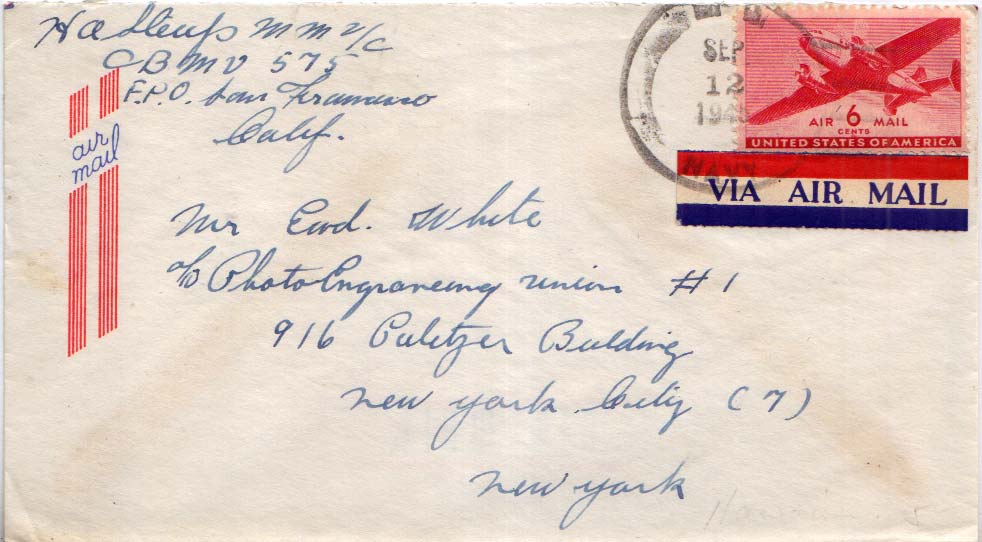 H A Steufs M M 2/C
C B M U 575
F.P.O. San Francisco
Calif.
air
mail
SEP
12
NAVY
AIR 6 MAIL
CENTS
UNITED STATES OF AMERICA
VIA AIR MAIL
Mr Ewd. White
c/o Photo Engraveing Union #1
916 Pulitzer Building
New York City (7)
New York